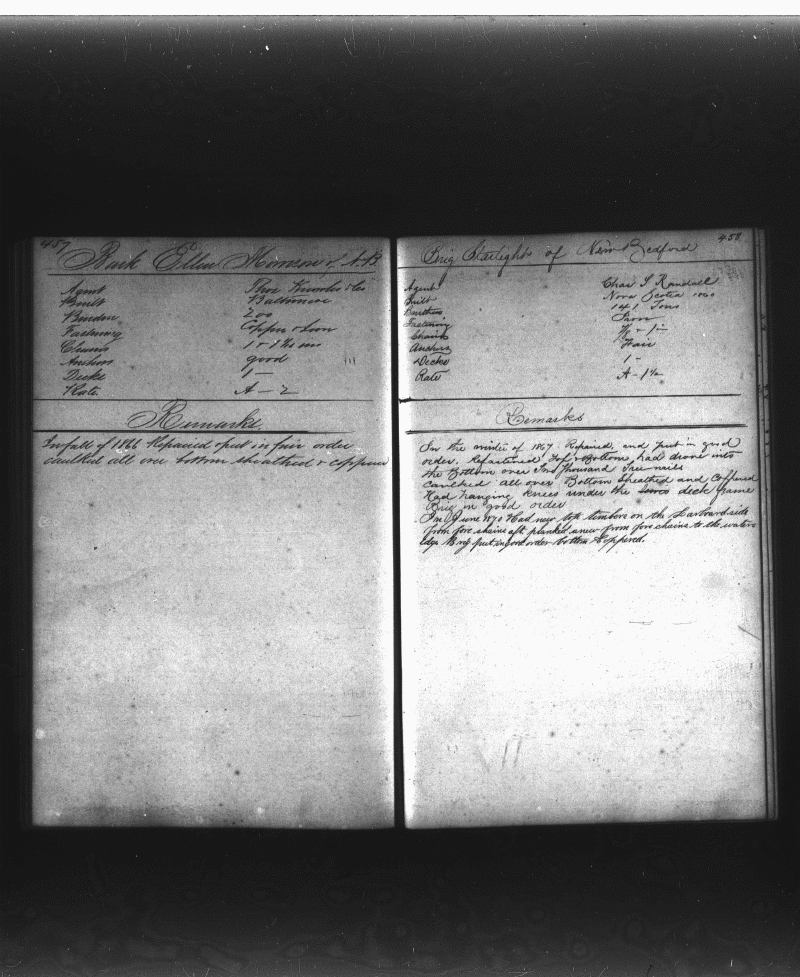 457
Bark Ellen Morrison of N.B.
Agent
Built Baltimore
Burden 200
Fastening Copper & Iron
Chains 1 & 1 1/16 in
Anchors good
Decks 1 —
Rate. A — 2
Remarks
In fall of 1866 Repaired & put in fair order
caulked all over bottom sheathed & coppered
458
Brig Starlight of New Bedford
Agent Chas S Randall
Built Nova Scotia 1860
Burthen 141 Tons
Fastening Iron
Chains
Anchors Fair
Decks 1 —
Rate A — 1 1/2
Remarks
In the winter of 1867. Repaired, and put in good
order. Refastened. Top & Bottom, had drove into
the Bottom over Two Thousand Tree nails
caulked all over Bottom Sheathed and Coppered
Had hanging knees under the deck frame
Brig in good order
In June 1870 Had new top timbers on the starboard side
from fore chains aft planked anew from fore chains to the waters
edge Brig put in good order bottom Coppered.